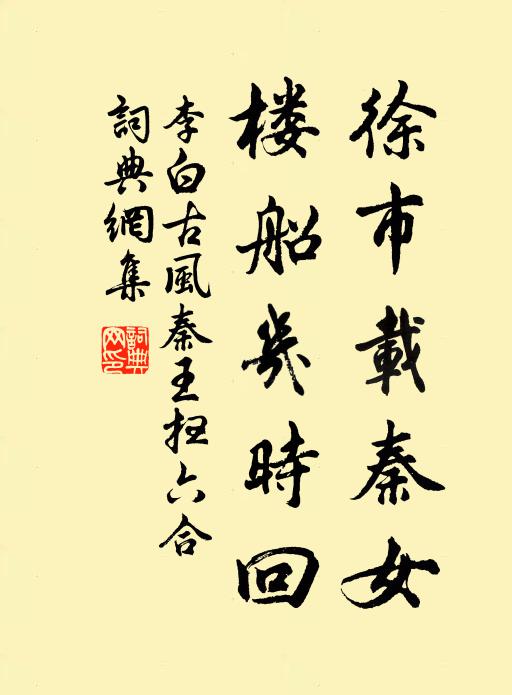 徐市載秦女
楼船幾時回
李白古風秦王扫六合
詞典網集
詞典網印